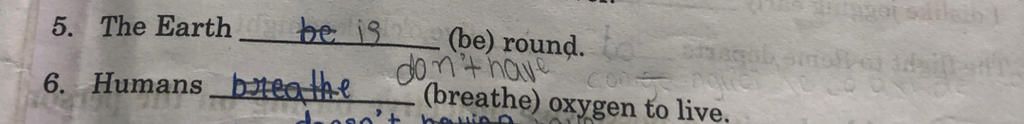 5. The Earth be is (be) round.
don't have
6. Humans breathe (breathe) oxygen to live.
doesn't having